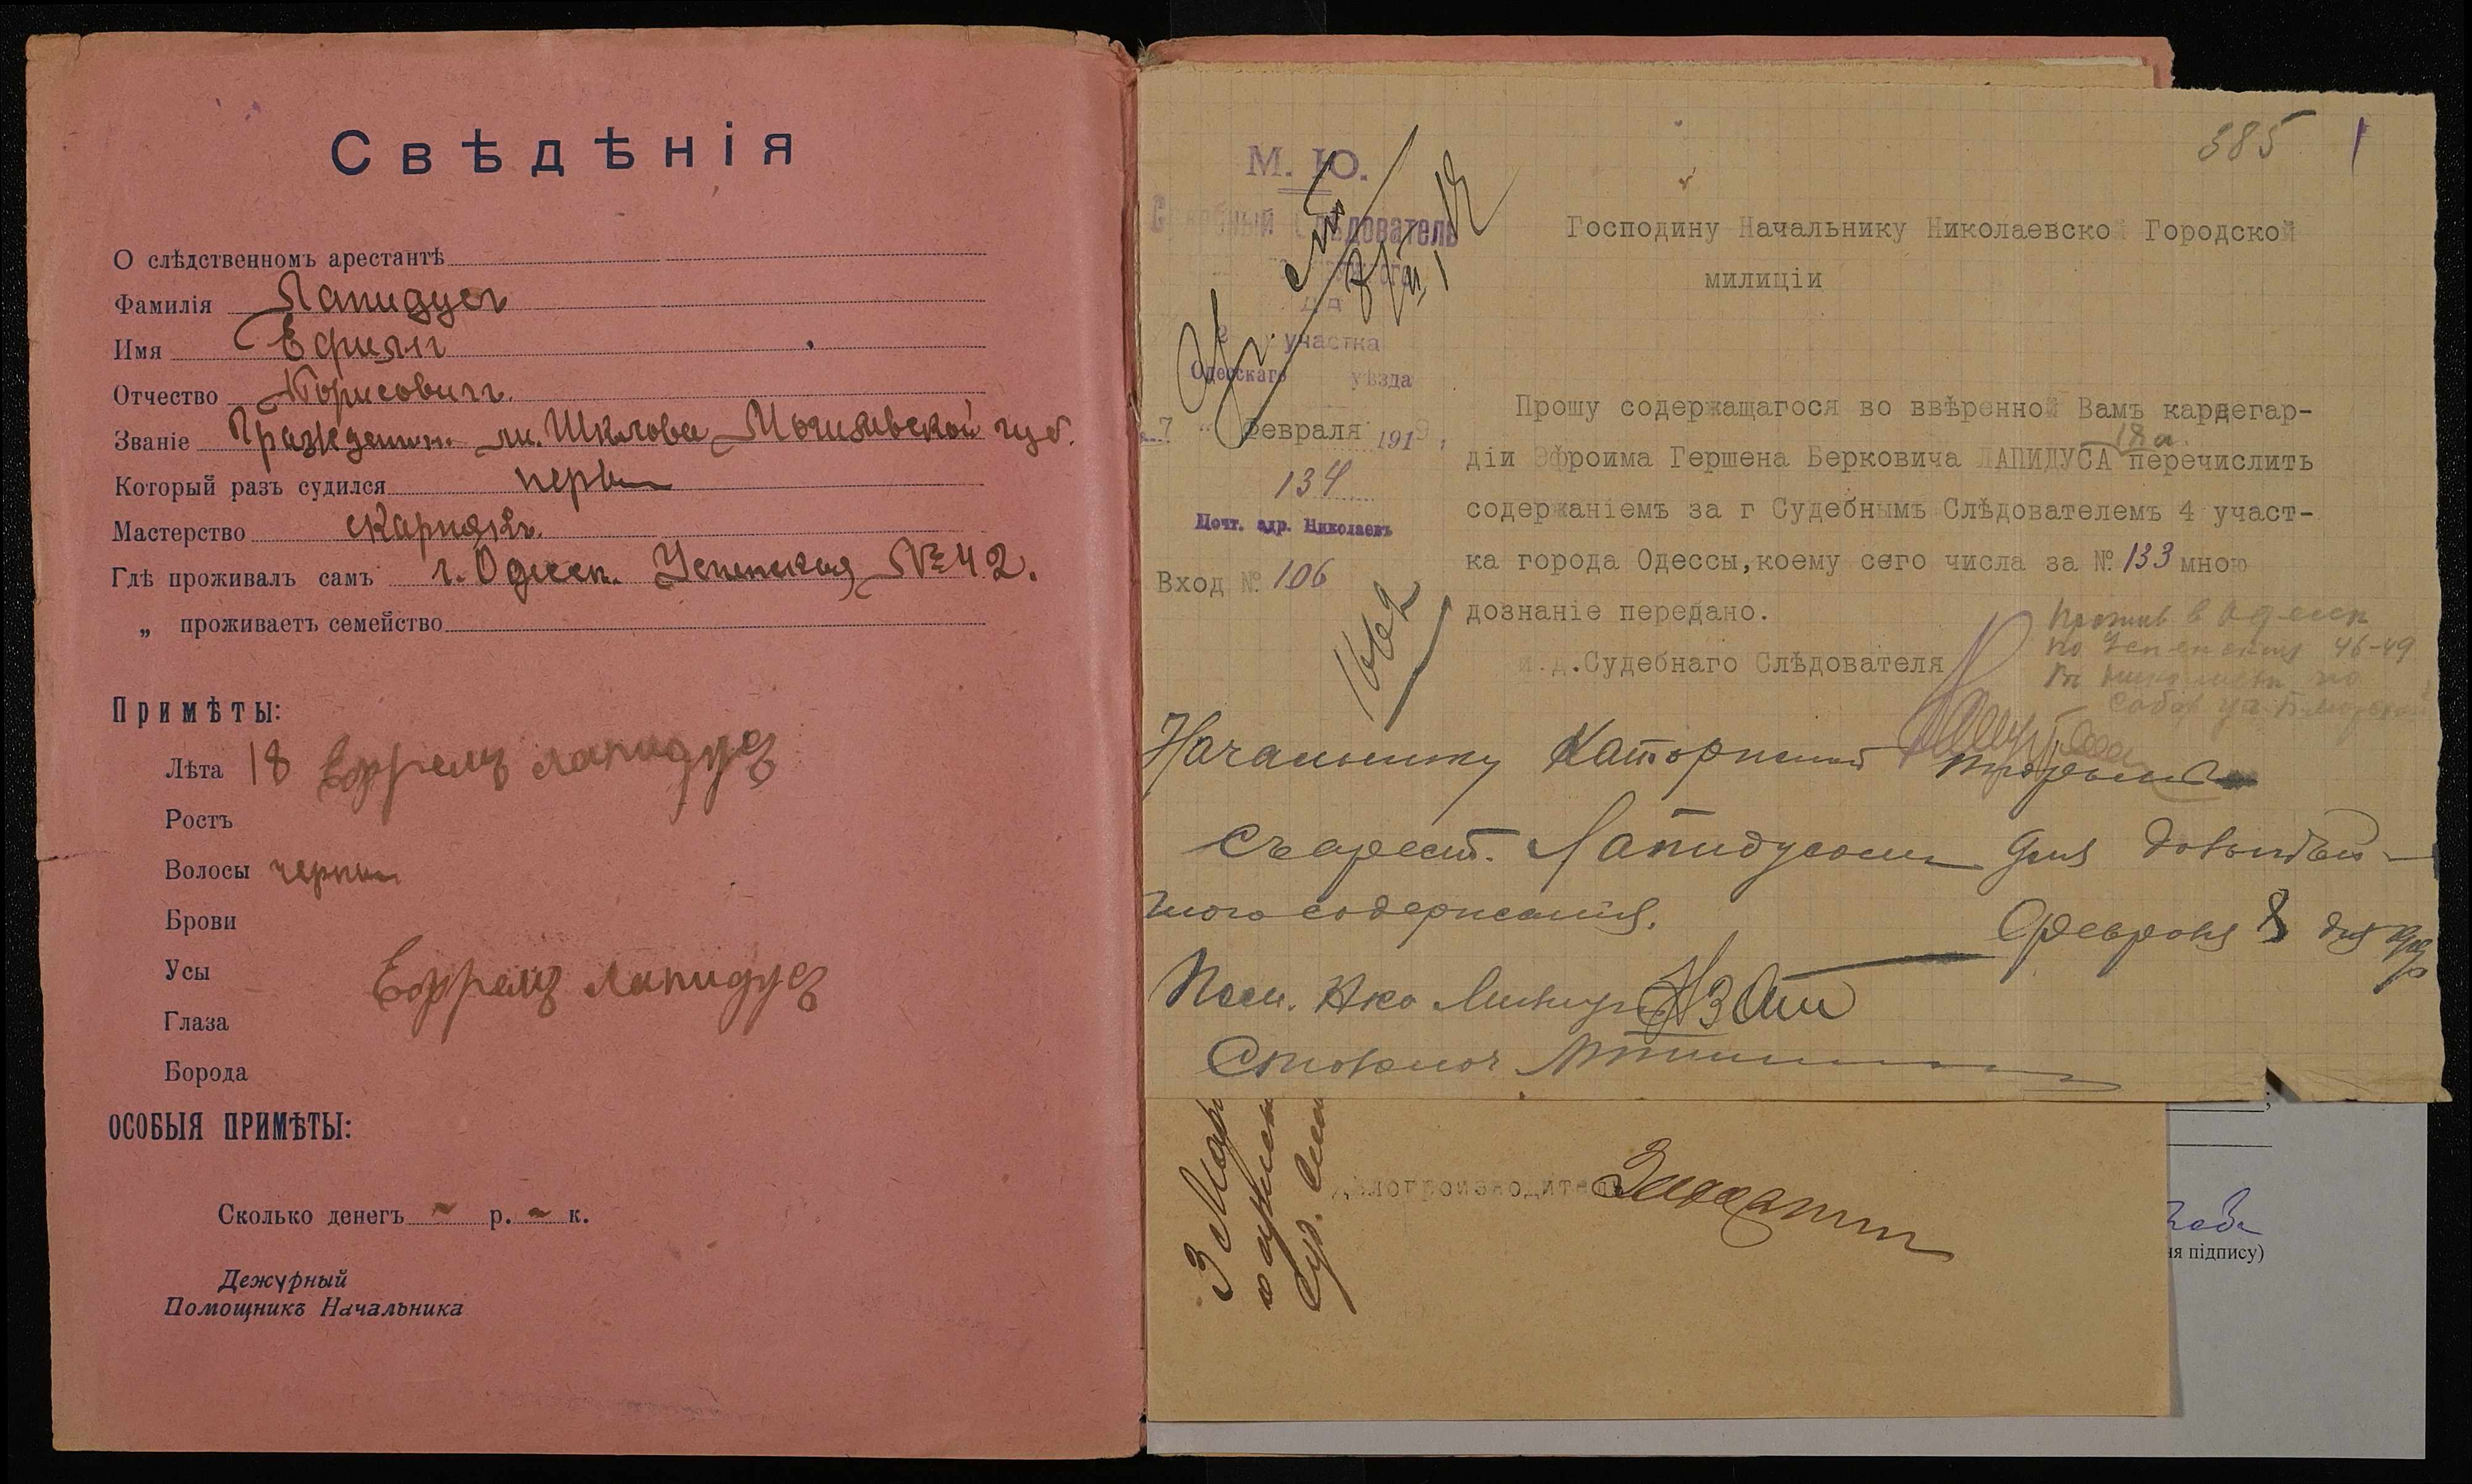 Свѣдѣнія
О слѣдственномъ арестантѣ
Фамилія Лапидусъ
Имя Ефремъ
Отчество Борисовичъ
Званіе Гражданинъ м. Шклова Могилевской губ.
Который разъ судился первый
Мастерство скорнякъ
Гдѣ проживалъ самъ г. Одесса. Успенская № 42.
„ проживаетъ семейство
Примѣты:
Лѣта 18 Ефремъ Лапидус
Ростъ
Волосы черные
Брови
Усы
Ефремъ Лапидус
Глаза
Борода
ОСОБЫЯ ПРИМѢТЫ:
Сколько денегъ ~ р. ~ к.
Дежурный
Помощникъ Начальника
385
М. Ю.
Судебный Слѣдователь
2 участка
Одесскаго уѣзда
7 " Февраля 1919
134
Почт. адр. Николаевъ
Вход № 106
1662
Господину Начальнику Николаевской Городской
милиціи
Прошу содержащагося во ввѣренной Вамъ кардегар-
18 л.
діи Эфроима Гершена Берковича ЛАПИДУСА перечислить
содержаніемъ за г Судебнымъ Слѣдователемъ 4 участ-
ка города Одессы,коему сего числа за № 133 мною
дознаніе передано.
и.д.Судебнаго Слѣдователя
Прожив в Одессе
по Успенская 46-49
Начальнику Каторжной тюрьмы
съ арест. Лапидусомъ для дальнѣй-
шаго содержанія.
Февраля 8 дня
Пом. Нка Милиціи
Столонач
3 Мар
Суд.
Дѣлопроизводитель
ня підпису)